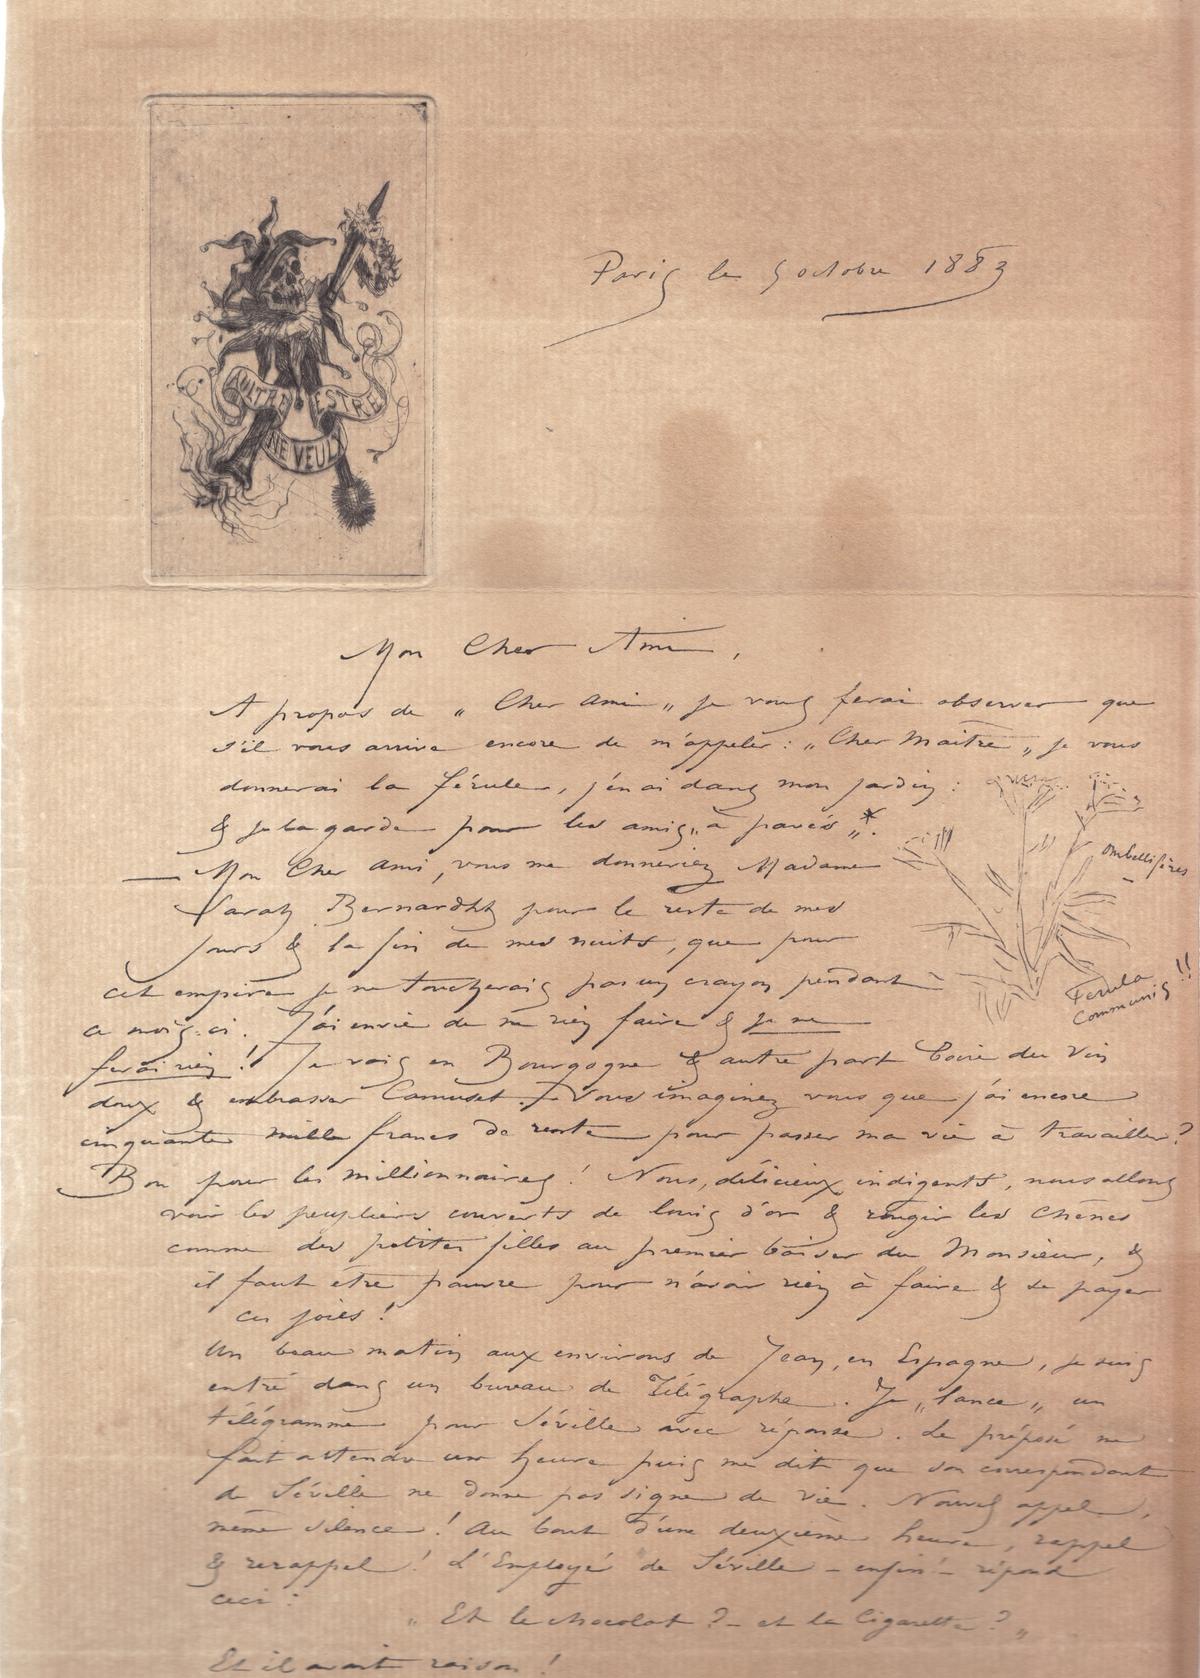 AULTRE NE VEULX ESTRE
Paris le 5 octobre 1883
Mon Cher Ami,
A propos de „ Cher ami „ je vous ferai observer que
s'il vous arrive encore de m'appeler : „ Cher Maître „ je vous
donnerai la férule, j'en ai dans mon jardin :
& je la garde pour les amis „ à pavés „*.
— Mon Cher ami, vous me donneriez Madame
Sarah Bernardht pour le reste de mes
jours & la fin de mes nuits, que pour
cet empire je ne toucherais pas un crayon pendant
ce mois-ci. J'ai envie de ne rien faire & je ne
ferai rien ! Je vais en Bourgogne & autre part boire du vin
doux & embrasser Camuset. — Vous imaginez vous que j'ai encore
cinquante mille francs de rente pour passer ma vie à travailler ?
Bon pour les millionnaires ! Nous, délicieux indigents, nous allons
voir les peupliers couverts de louis d'or & rougir les chênes
comme des petites filles au premier baiser du Monsieur, &
il faut être pauvre pour n'avoir rien à faire & se payer
ces joies !
Un beau matin aux environs de Jean, en Espagne, je suis
entré dans un bureau de Télégraphe. Je „ lance „ un
télégramme pour Séville avec réponse. Le préposé me
fait attendre une heure puis me dit que son correspondant
de Séville ne donne pas signe de vie. Nouvel appel,
même silence ! Au bout d'une deuxième heure, rappel
& rerappel ! L'Employé de Séville – enfin ! – répond
ceci :
„ Et le chocolat ? – et la Cigarette ? „
Et il avait raison !
ombellifères
Ferula
Communis !!